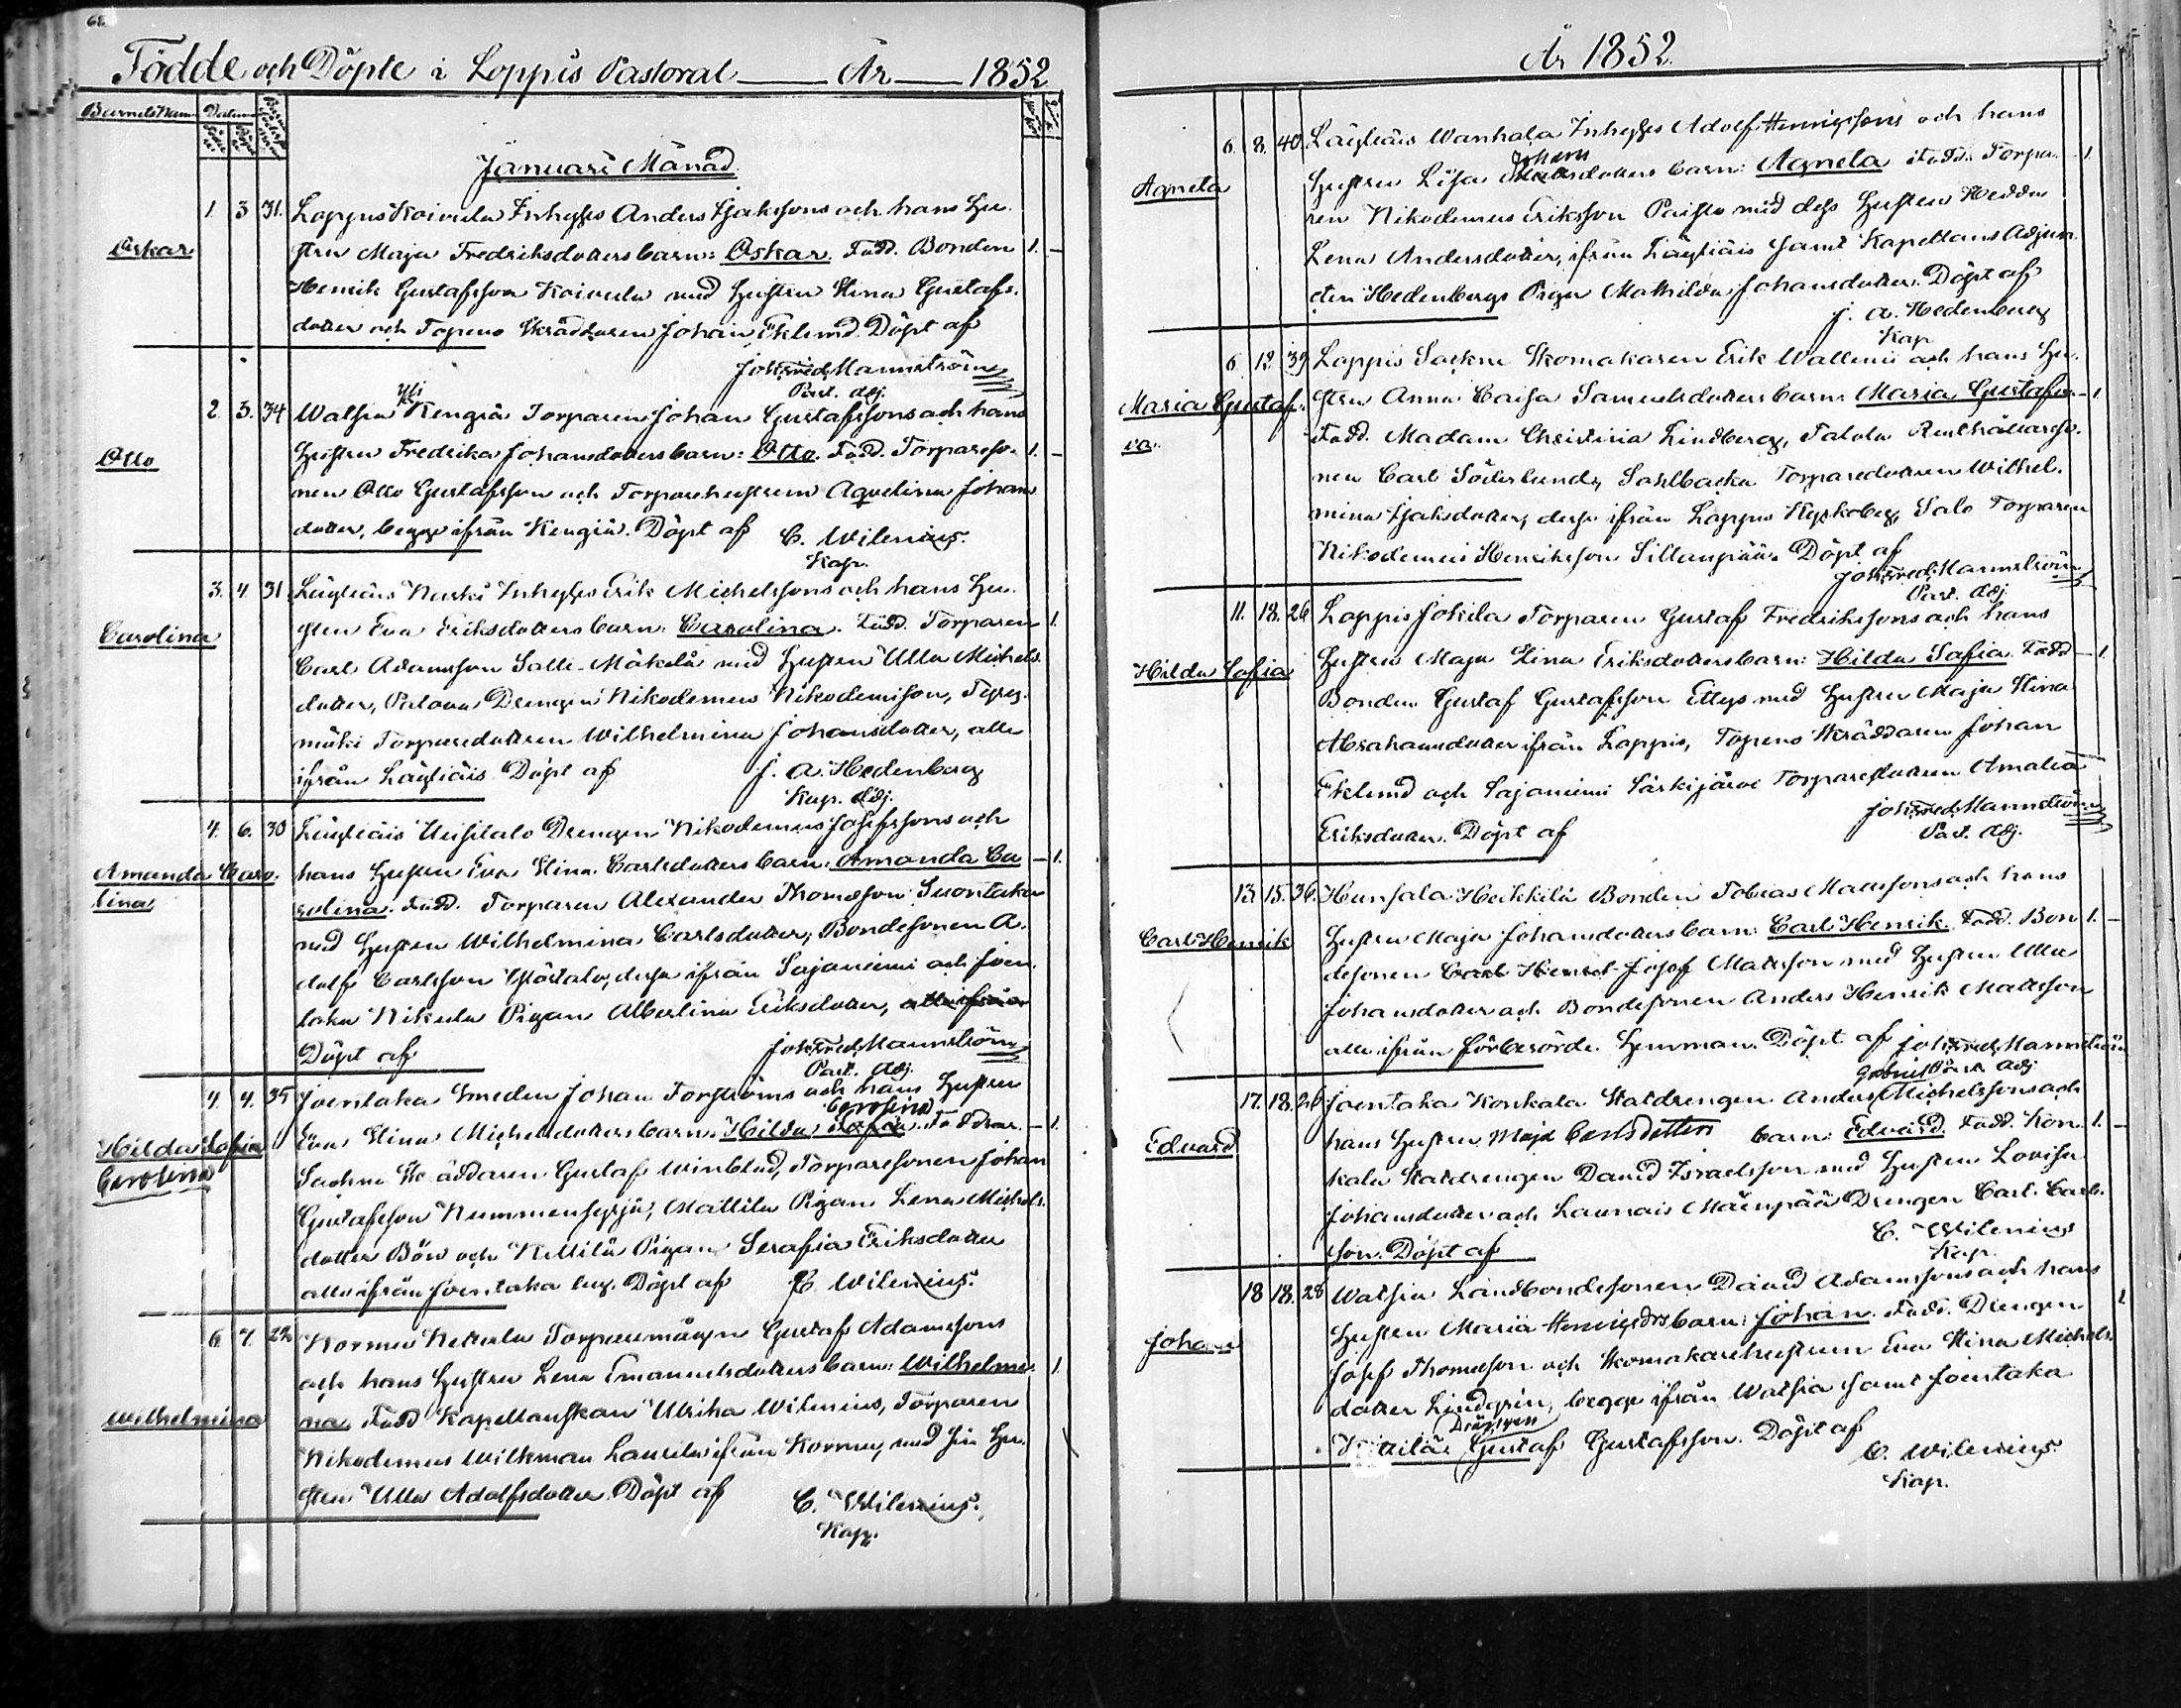 68.
Födde och Döpte i Loppis Pastorat — År — 1852
Barnets Namn Datum
Januari Månad.
1. 3 31. Loppis Koivula Inhyses Anders Isakssons och hans Hu-
Oskar stru Maja Fredriksdotters barn: Oskar. Fadd. Bonden 1. –
Henrik Gustafsson Koivula med Hustru Stina Gustafs-
dotter och Topeno Skräddaren Johan Eklund. Döpt af
Joh: Fred: Mannström
Past. Adj.
2. 3. 34 Watsia Yli Kengiä Torparen Johan Gustafssons och hans
Otto Hustru Fredrika Johansdotters barn: Otto. Fadd. Torpareso- 1. –
nen Otto Gustafsson och Torparehustrun Aqvelina Johans
dotter, begge ifrån Kengiä. Döpt af C. Wilenius.
Kap.
3. 4 31 Läyliäis Inhyses Erik Michelssons och hans Hu-
Carolina stru Eva Eriksdotters barn: Carolina. Fadd. Torparen 1.
Carl Adamsson Salle-Mäkelä med Hustru Ulla Michels-
dotter, Palova Drengen Nikodemus Nikodemison,
mäki Torparedottren Wilhelmina Johansdotter, alla
ifrån Läyliäis Döpt af J. A. Hedenberg
Kap. Adj.
4. 6. 30 Läyliäis Uusitalo Drengen Nikodemus Josefssons och
Amanda Caro- hans Hustru Eva Stina Carlsdotters barn: Amanda Ca – 1.
lina rolina. Fadd. Torparen Alexander Thomasson Suontaka
med Hustru Wilhelmina Carlsdotter, Bondesonen A-
dolf Carlsson Ylöstalo, dessa ifrån Sajaniemi och Joen-
taka Nikula Pigan Albertina Eriksdotter, alla ifrån
Döpt af Joh: Fred: Mannström
Past. Adj.
4. 4. 35 Joentaka Smeden Johan Forströms och hans Hustru
Carolina
Hilda Sofia Eva Stina Michelsdotters barn: Hilda Sofia. Faddrar. – 1.
Carolina Sackne Skräddaren Gustaf Winblad, Torparesonen Johan
Gustafsson Nummensyrjä, Mattila Pigan Lena Michels-
dotter Böw och Kittilä Pigan Serafia Eriksdotter
alla ifrån Joentaka by. Döpt af C. Wilenius.
6. 7. Kormu Torparemågen Gustaf Adamssons
och hans Hustru Lena Emanuelsdotters barn: Wilhelmi- 1
Wilhelmina na. Fadd Kapellanskan Ulrika Wilenius, Torparen
Nikodemus Wilkman Laurila ifrån Kormu, med sin Hu-
stru Ulla Adolfsdotter. Döpt af C. Wilenius.
Kap.
År 1852.
6. 8. 40. Läyliäis Wanhala Inhyses Adolf Henrigssons och hans
Johans
Agneta Hustru Lisa dotters barn: Agneta Fadd. Torpa- – 1.
ren Nikodemus Eriksson Paisto med dess Hustru Hedda
Lena Andersdotter, ifrån Läyliäis samt Kapellans Adjun-
cten Hedenbergs Piga Mathilda Johansdotter. Döpt af
J. A. Hedenberg
Kap
6. 12. 39 Loppis Sackne Skomakaren Erik Wallenii och hans Hu-
Maria Gustaf- stru Anna Caisa Samuelsdotters barn: Maria Gustafva – 1.
va. Fadd. Madam Christina Lindberg, Talola Rusthållareso-
nen Carl Söderlund, Sahlbacka Torparedottren Wilhel-
mina Isaksdotter, dessa ifrån Loppis Kyrkoby, Salo Torparen
Nikodemus Henriksson Sillanpää. Döpt af
Joh: Fred: Mannström
Past. Adj.
11. 18. 26 Loppis Jokila Torparen Gustaf Fredrikssons och hans
Hilda Sofia Hustru Maja Lina Eriksdotters barn: Hilda Sofia. Fadd – 1.
Bonden Gustaf Gustafsson Ettys med Hustru Maja Stina
Abrahamsdotter ifrån Loppis, Topeno Skräddaren Johan
Eklund och Sajaniemi Särkijärvi Torparedottren Amalia
Eriksdotter. Döpt af Joh: Fred: Mannström
Past. Adj.
13. 15. 36. Hunsala Heikkilä Bonden Tobias Mattssons och hans
Carl Henrik Hustru Maja Johansdotters barn: Carl Henrik. Fadd. Bon 1. –
desonen Carl Josef Mattsson med Hustru Ulla
Johansdotter och Bondesonen Anders Henrik Mattsson
alla ifrån förberörde Hemman. Döpt af Joh: Fred: Mannström
Past. Adj.
17. 18. 26 Joentaka Konkala Statdrengen Anders Michelssons och
Edvard hans Hustru Maja Carlsdotters barn: Edvard. Fadd. Kon- 1. –
kala Statdrengen David Israelsson med Hustru Lovisa
Johansdotter och Launais Mäenpää Drengen Carl Carls-
son. Döpt af C. Wilenius
Kap.
18 18. 28 Watsia Landbondesonen David Adamssons och hans
Johan Hustru Maria Henrigsdrs barn: Johan. Fadd. Drengen 1
Josef Thomasson och Skomakarehustrun Eva Stina Michels-
dotter Lindgrén, begge ifrån Watsia samt Joentaka
Drängen
Kittilä Gustaf Gustafsson. Döpt af
C. Wilenius.
Kap.